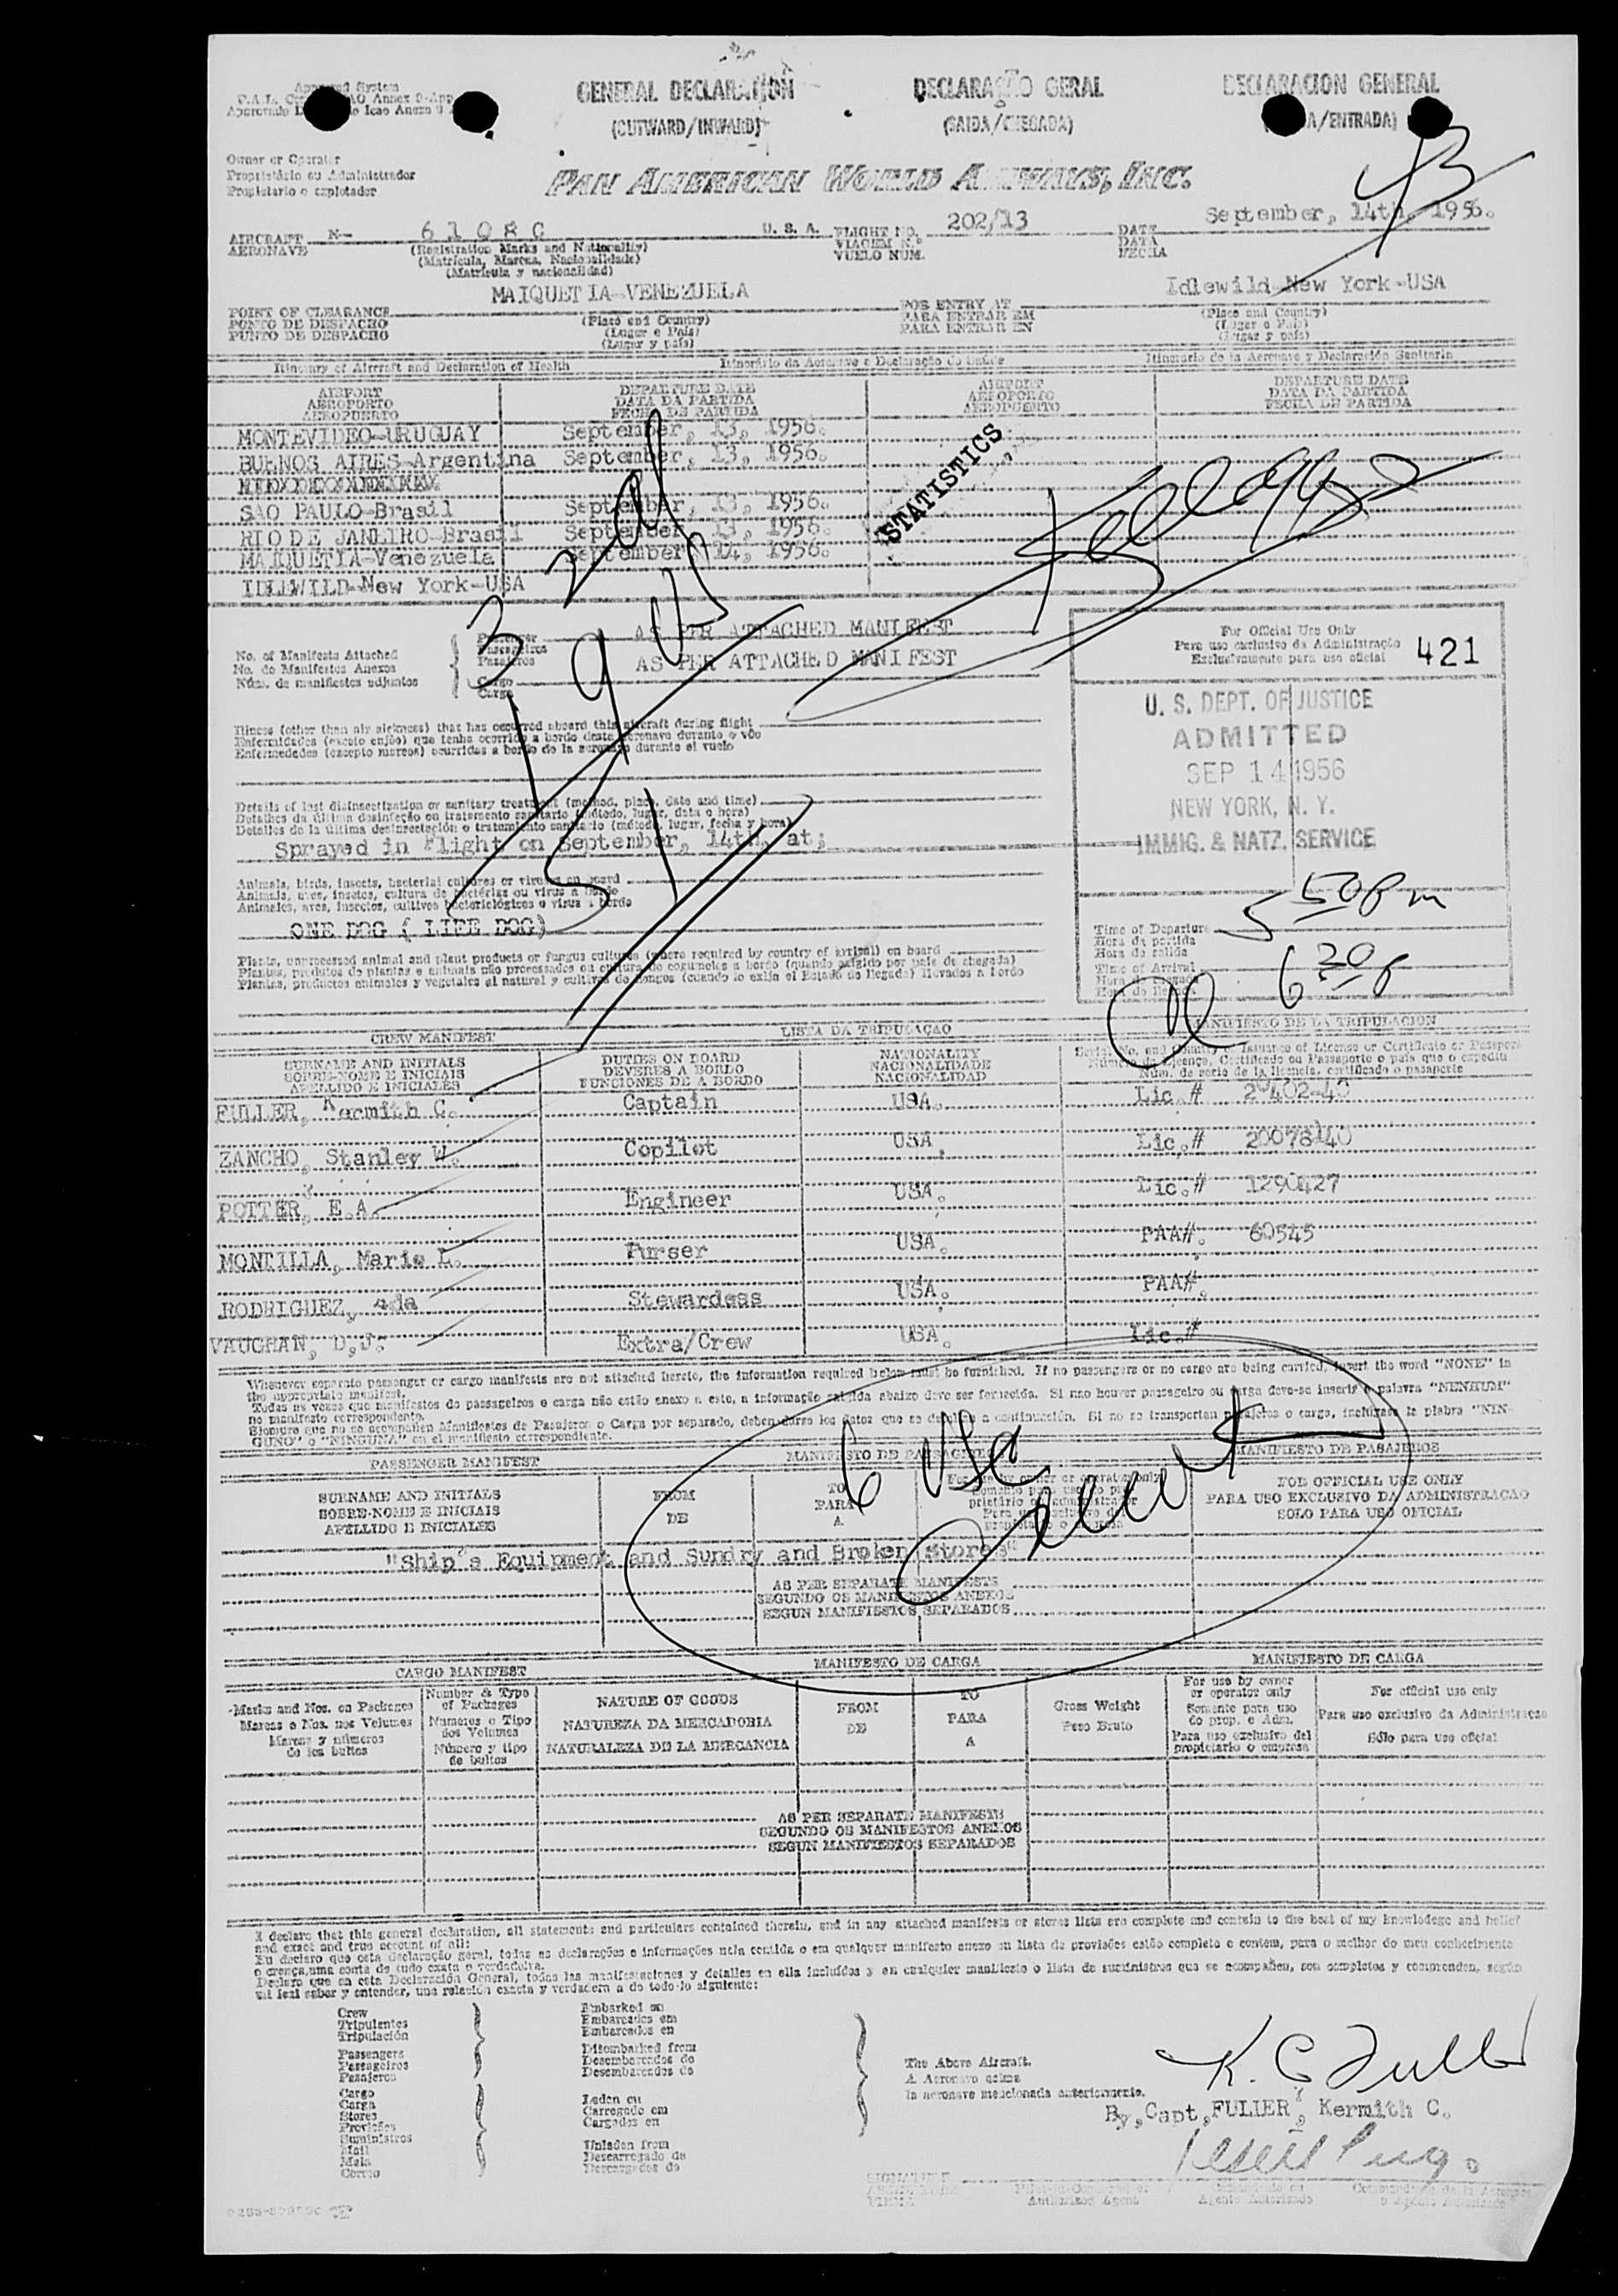 GENERAL DECLARATION
(OUTWARD/INWARD)
DECLARAÇÃO GERAL
(SAIDA/CHEGADA)
DECLARACION GENERAL
A/ENTRADA)
Owner or Operator
Proprietário ou Administrador
Propietario o explotador
PAN AMERICAN WORLD AIRWAYS, INC.
43
AIRCRAFT N- 6108C U. S. A. FLIGHT NO. 202/13 DATE September, 14th, 1956.
AERONAVE (Registration Marks and Nationality) VIAGEM N.º DATA
(Matrícula, Marcas, Nacionalidade) VUELO NUM. FECHA
(Matrícula y nacionalidad)
POINT OF CLEARANCE MAIQUETIA-VENEZUELA FOR ENTRY AT Idlewild-New York-USA
PONTO DE DESPACHO (Place and Country) PARA ENTRAR EM (Place and Country)
PUNTO DE DESPACHO (Lugar e País) PARA ENTRAR EN (Lugar e País)
(Lugar y país) (Lugar y país)
Itinerary of Aircraft and Declaration of Health Itinerário da Aeronave e Declaração de Saúde Itinerario de la Aeronave y Declaración Sanitaria
AIRPORT DEPARTURE DATE AIRPORT DEPARTURE DATE
AEROPORTO DATA DA PARTIDA AEROPORTO DATA DA PARTIDA
AEROPUERTO FECHA DE PARTIDA AEROPUERTO FECHA DE PARTIDA
MONTEVIDEO-URUGUAY September, 13, 1956.
BUENOS AIRES-Argentina September, 13, 1956.
SAO PAULO-Brasil September, 13, 1956.
RIO DE JANEIRO-Brasil September 13, 1956.
MAIQUETIA-Venezuela September, 14, 1956.
IDLEWILD-New York-USA
STATISTICS
No. of Manifests Attached Passenger AS PER ATTACHED MANIFEST
No. de Manifestos Anexos Passageiros
Núm. de manifiestos adjuntos Pasajeros AS PER ATTACHED MANIFEST
Cargo
Carga
For Official Use Only
Para uso exclusivo da Administração
Exclusivamente para uso oficial
421
U. S. DEPT. OF JUSTICE
ADMITTED
SEP 14 1956
NEW YORK, N. Y.
IMMIG. & NATZ. SERVICE
Illness (other than air sickness) that has occurred aboard this aircraft during flight
Enfermidades (exceto enjôo) que tenha ocorrido a bordo desta aeronave durante o vôo
Enfermedades (excepto mareos) ocurridas a bordo de la aeronave durante el vuelo
Details of last disinsectization or sanitary treatment (method, place, date and time)
Detalhes da última desinfeção ou tratamento sanitario (método, lugar, data e hora)
Detalles de la última desinsectación o tratamiento sanitario (método, lugar, fecha y hora)
Sprayed in Flight on September, 14th, at;
Animals, birds, insects, bacterial cultures or virus on board
Animais, aves, insetos, cultura de bactérias ou virus a bordo
Animales, aves, insectos, cultivos bacteriológicos o virus a bordo
ONE DOG ( LIFE DOG)
Plants, unprocessed animal and plant products or fungus cultures (where required by country of arrival) on board
Plantas, produtos de plantas e animais não processados ou cultura de cogumelos a bordo (quando exigido por país de chegada)
Plantas, productos animales y vegetales al natural y cultivos de hongos (cuando lo exija el Estado de llegada) llevados a bordo
Time of Departure 5 50 pm
Hora da partida
Hora de salida
Time of Arrival 6 20 p
CREW MANIFEST LISTA DA TRIPULAÇAO MANIFIESTO DE LA TRIPULACION
SURNAME AND INITIALS DUTIES ON BOARD NATIONALITY
SOBRE-NOME E INICIAIS DEVERES A BORDO NACIONALIDADE
APELLIDO E INICIALES FUNCIONES DE A BORDO NACIONALIDAD Núm. de serie de la licencia, certificado o pasaporte
FULLER, Kermith C. Captain USA. Lic.#
ZANCHO, Stanley W. Copilot USA. Lic.# 20078140
POTTER, E.A. Engineer USA. Lic.# 1290427
MONTILLA, Marie L. Purser USA. PAA#. 60545
RODRIGUEZ, Ada Stewardess USA. PAA#.
VAUGHAN, D.J. Extra/Crew USA. Lic.#
Whenever separate passenger or cargo manifests are not attached hereto, the information required below must be furnished. If no passengers or no cargo are being carried, insert the word "NONE" in
the appropriate manifest.
Todas as vezes que manifestos de passageiros e carga não estão anexo a este, a informação exigida abaixo deve ser fornecida. Si nao houver passageiro ou carga deve-se inserir a palavra "NENHUM"
no manifesto correspondente.
Siempre que no se acompañen Manifiestos de Pasajeros o Carga por separado, deben darse los datos que se detallan a continuación. Si no se transportan pasajeros o carga, inclúyase la plabra "NIN-
GUNO" o "NINGUNA" en el manifiesto correspondiente.
6 USA
PASSENGER MANIFEST MANIFESTO DE PASSAGEIROS MANIFIESTO DE PASAJEROS
SURNAME AND INITIALS FROM TO FOR OFFICIAL USE ONLY
SOBRE-NOME E INICIAIS DE PARA PARA USO EXCLUSIVO DA ADMINISTRAÇAO
APELLIDO E INICIALES A SOLO PARA USO OFICIAL
"Ship's Equipment and Sundry and Broken Stores"
AS PER SEPARATE MANIFESTS
SEGUNDO OS MANIFESTOS ANEXOS
SEGUN MANIFIESTOS SEPARADOS
CARGO MANIFEST MANIFESTO DE CARGA MANIFIESTO DE CARGA
Marks and Nos. on Packages Number & Type of Packages NATURE OF GOODS FROM TO Gross Weight For use by owner or operator only For official use only
Marcas e Nos. nos Volumes Números e Tipo dos Volumes NATUREZA DA MERCADORIA DE PARA Peso Bruto Somente para uso do prop. e Adm. Para uso exclusivo da Administraçao
Marcas y números de los bultos Número y tipo de bultos NATURALEZA DE LA MERCANCIA A Para uso exclusivo del propietario o empresa Sólo para uso oficial
AS PER SEPARATE MANIFESTS
SEGUNDO OS MANIFESTOS ANEXOS
SEGUN MANIFIESTOS SEPARADOS
I declare that this general declaration, all statements and particulars contained therein, and in any attached manifests or stores lists are complete and contain to the best of my knowledege and belief
and exact and true account of all:
Eu declaro que esta declaração geral, todas as declarações e informações nela contida o em qualquer manifesto anexo ou lista de provisões estão completo e contem, para o melhor do meu conhecimento
e crença, uma conta de tudo exata e verdadeira.
Declaro que en esta Declaración General, todas las manifestaciones y detalles en ella incluídos y en cualquier manifiesto o lista de suministros que se acompañen, son completos y comprenden, según
mi leal saber y entender, una relación exacta y verdadera a de todo lo siguiente:
Crew Embarked on
Tripulentes Embarcados em
Tripulación Embarcados en
Passengers Disembarked from
Passageiros Desembarcados do
Pasajeros Desembarcados de
Cargo Laden on
Carga Carregado em
Stores Cargados en
Provisões
Suministros Unladen from
Mail Descarregado de
Mala Descargados de
Correo
The Above Aircraft.
A Aeronave acima
la aeronave mencionada anteriormente.
K. C. Fuller
By, Capt, FULLER, Kermith C.
SIGNATURE
FIRMA Authorized Agent Agente Autorizado